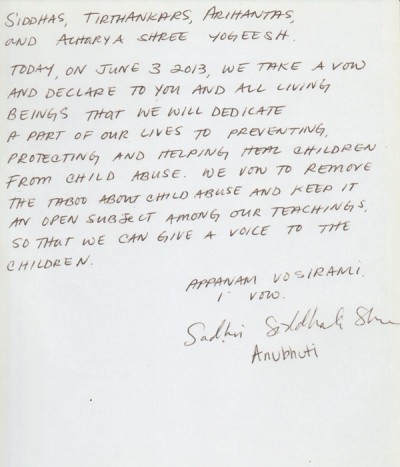 SIDDHAS, TIRTHANKARS, ARIHANTAS,
AND ACHARYA SHREE YOGEESH.
TODAY, ON JUNE 3 2013, WE TAKE A VOW
AND DECLARE TO YOU AND ALL LIVING
BEINGS THAT WE WILL DEDICATE
A PART OF OUR LIVES TO PREVENTING,
PROTECTING AND HELPING HEAL CHILDREN
FROM CHILD ABUSE. WE VOW TO REMOVE
THE TABOO ABOUT CHILD ABUSE AND KEEP IT
AN OPEN SUBJECT AMONG OUR TEACHINGS,
SO THAT WE CAN GIVE A VOICE TO THE
CHILDREN.
APPANAM VOSIRAMI.
I VOW.
Sadhvi Siddhali Shree
Anubhuti